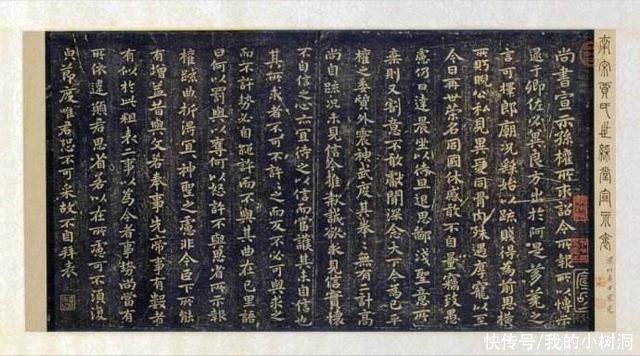 南宋賈氏世綵堂宣示表
尚書宣示孫權所求詔令所報所以博示
逮于卿佐必冀良方出於阿是芻蕘之
言可擇郎廟況繇始以疏賤得為前恩橫
所盱睨公私見異愛同骨肉殊遇厚寵以至
今日再世榮名同國休慼敢不自量竊致愚
慮仍日達晨坐以待旦退思鄙淺聖意所
棄則又割意不敢獻聞深念天下今為已平
權之委質外震神武度其拳拳無有二計高
尚自疏況未見信今推款誠欲求見信實懷
不自信之心亦宜待之以信而當護其未自信也
其所求者不可不許許之而反不必可與求之
而不許勢必自絕許而不與其曲在己里語
曰何以罰與以奪何以怒許不與思省所示報
權疏曲折得宜宜神聖之慮非今臣下所能
有增益昔與文若奉事先帝事有數者
有似於此粗表二事以為今者事勢尚當有
所依違願君思省若以在所慮可不須復
貌節度唯君恐不可采故不自拜表
快传号/我的小树洞